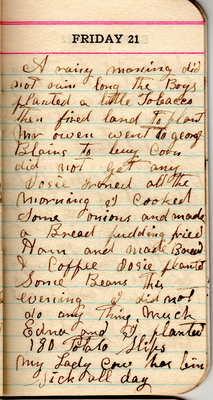 FRIDAY 21
A rainy morning did
not rain long the Boys
planted a little Tobacco
then fixed land to plant
Mr owen went to georg
Blains to buy Corn
did not get any
Josie ironed all the
morning I Cooked
Some onions and made
a Bread pudding fried
Ham and made Bread
& Coffee Josie plants
Some Beans this
evening I did not
do any Thing Much
Edna and I planted
180 Potato Slips
My Lady Cow has bin
Sick all day